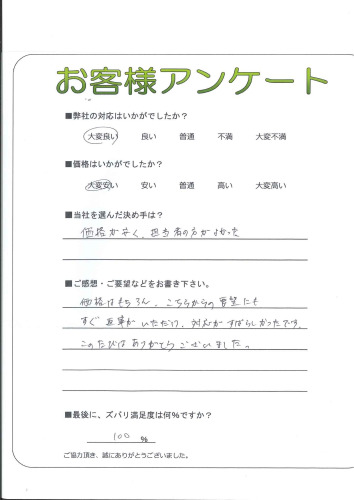 お客様アンケート
■弊社の対応はいかがでしたか？
大変良い 良い 普通 不満 大変不満
■価格はいかがでしたか？
大変安い 安い 普通 高い 大変高い
■当社を選んだ決め手は？
価格が安く、担当者の方がよかった
■ご感想・ご要望などをお書き下さい。
価格はもちろん、こちらからの要望にも
すぐ返事がいただけ、対応がすばらしかったです。
このたびはありがとうございました。
■最後に、ズバリ満足度は何％ですか？
100 ％
ご協力頂き、誠にありがとうございました。